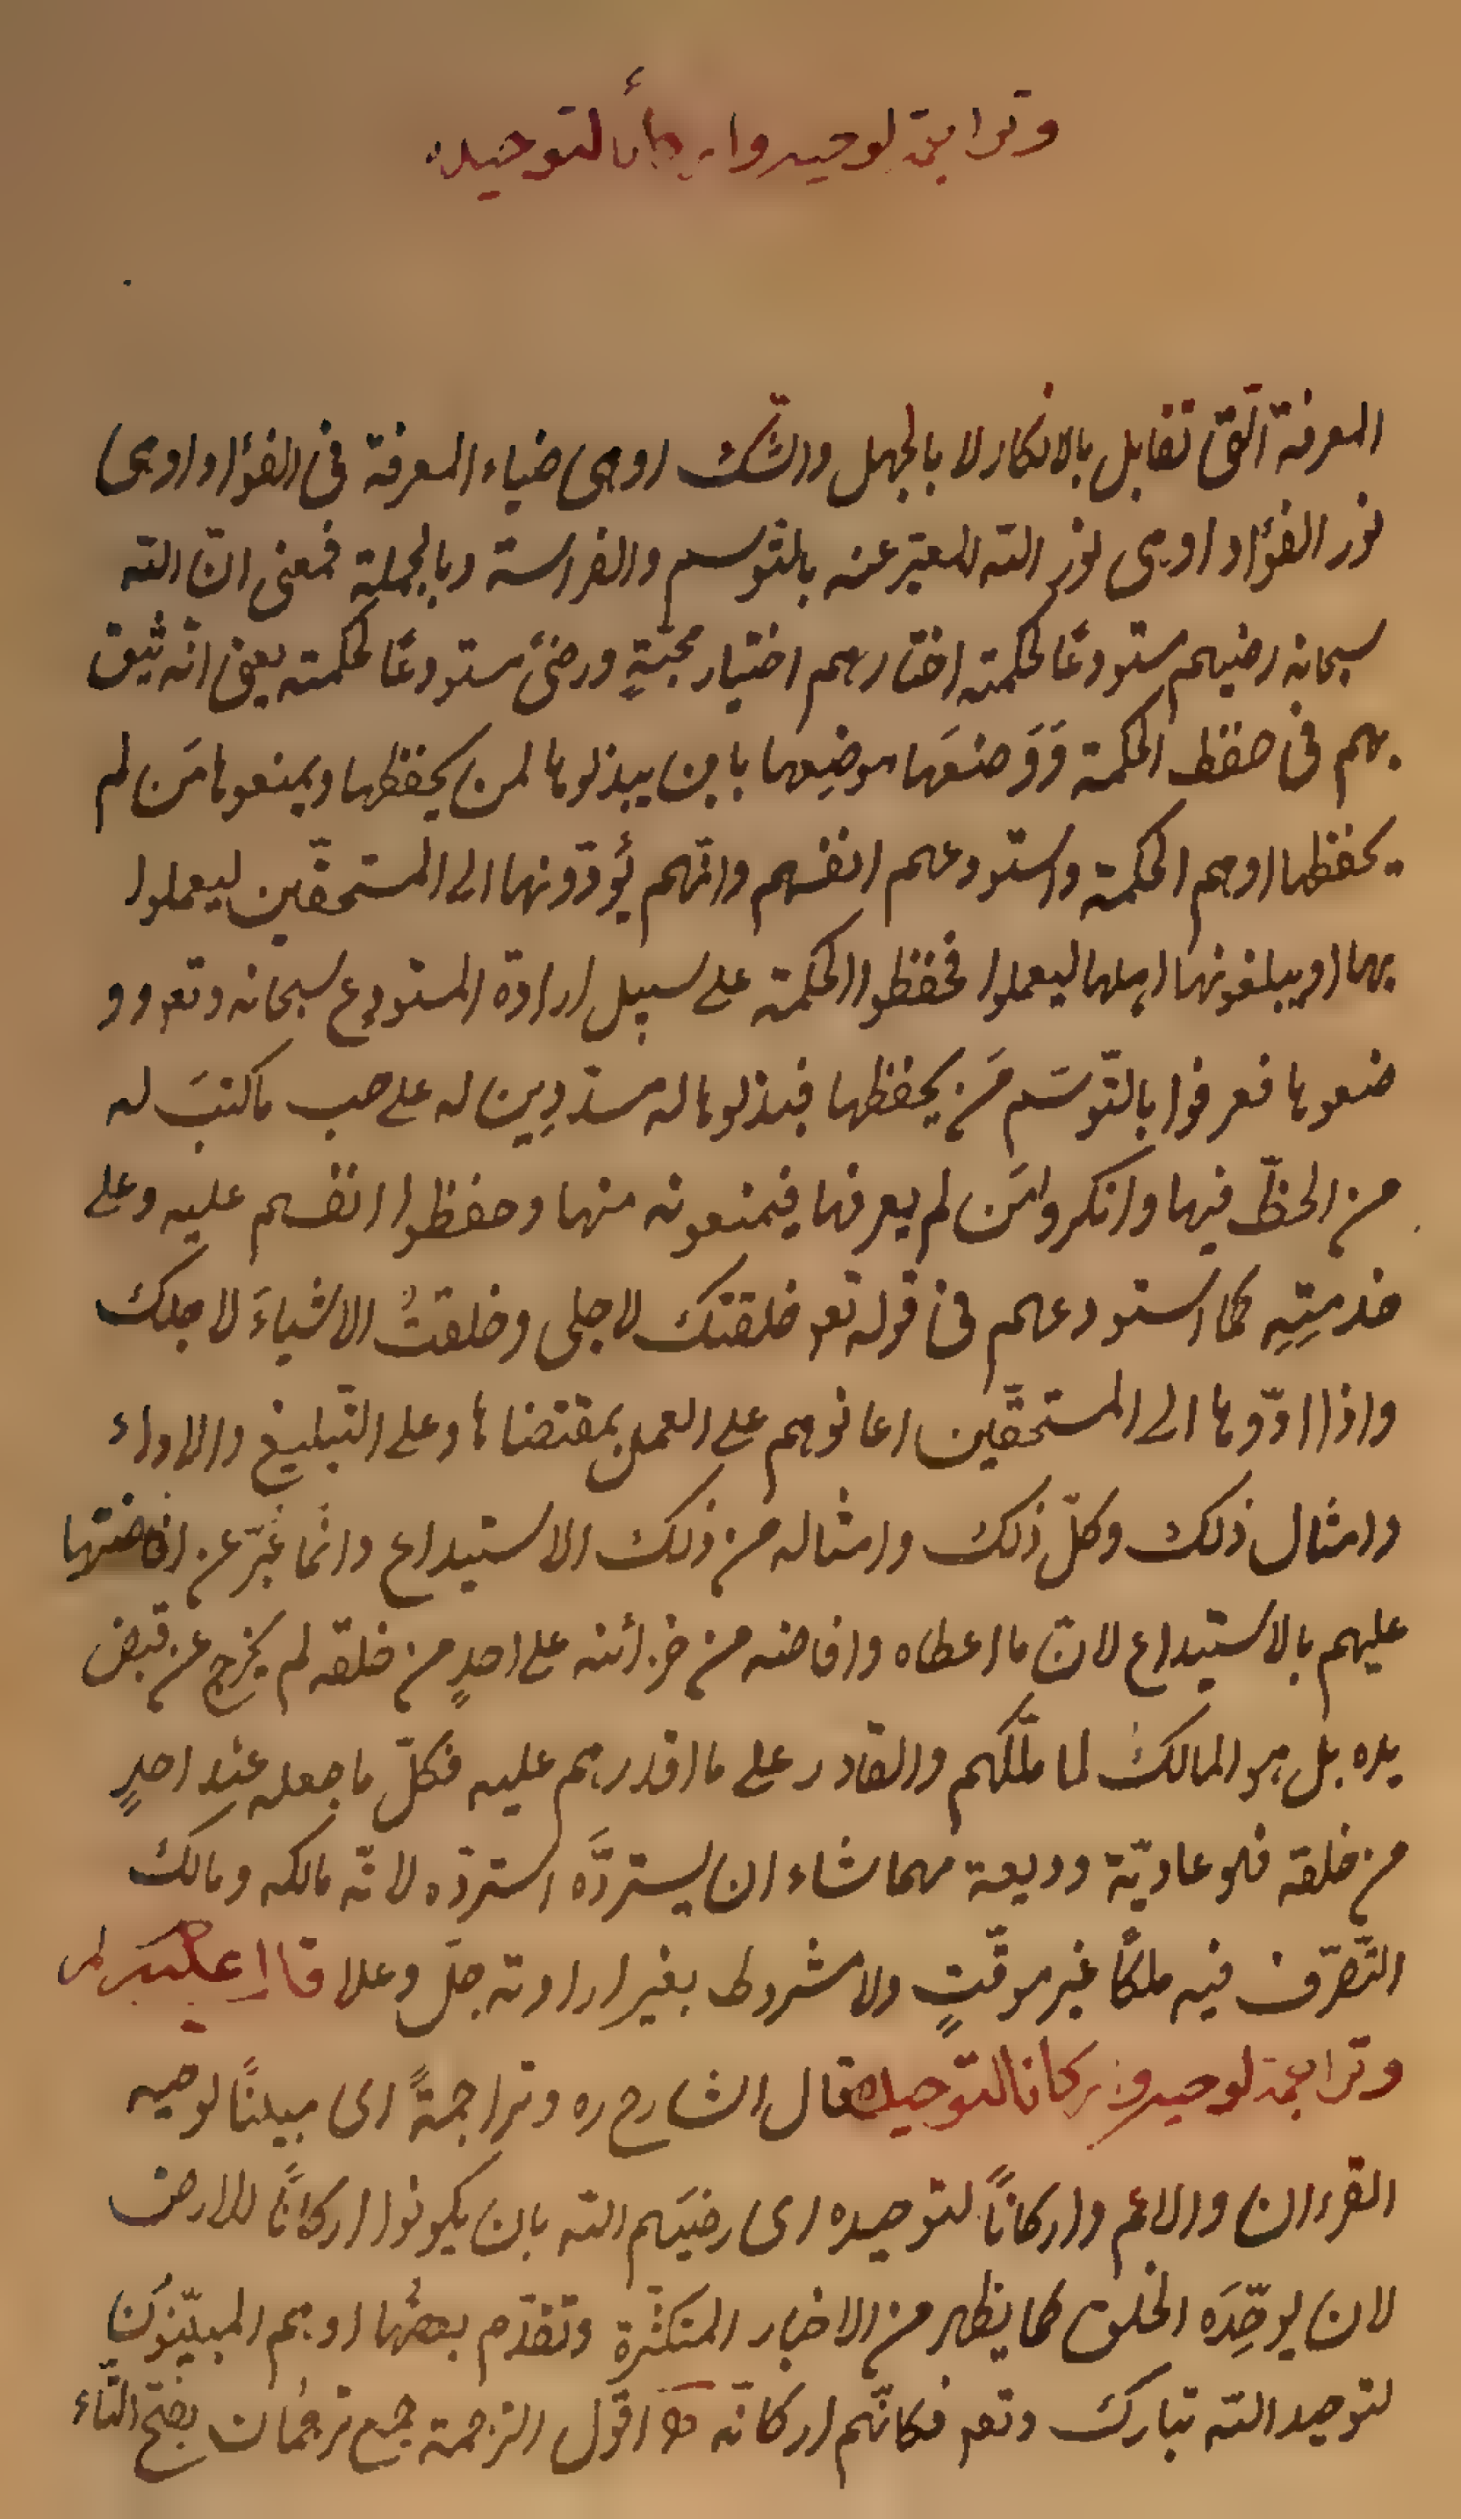 وتراجمة لوحيه واركانا لتوحيده
المعرفة الّتى تقابل بالانكار لا بالجهل والشّك او هى ضياء المعرفة فى الفؤاد او هى
نور الفؤاد او هى نور الله المعبّر عنه بالتّوسم والفراسة وبالجملة فمعنى انّ الله
سبحانه رضيهم مستودعًا لحكمته اختارهم اختيار محبّةٍ ورضىً مستودعًا لحكمته يعنى انّه يثق
بهم فى حفظ الحكمة وَوَضعَها موضِعها بان يبذلوها لمن يحفظها ويمنعوها مَن لم
يحفظها او هم الحكمة واستودعهم انفسهم وانّهم يؤدّونها الى المستحقّين ليعملوا
بها او يبلغونها اهلها ليعملوا فحفظوا الحكمة على سبيل ارادة المستودِع سبحانه وتعم وو
ضعوها فعرفوا بالتّوسّم مَن يحفظها فبذلوها له مسدّدِين له على حسب ما كتبَ له
من الحظّ فيها وانكروا مَن لم يعرفها فيمنعونه منها وحفظوا انفسهم عليه وعلى
خدمتِهِ كما استودعهم فى قوله تعم خلقتك لاجلى وخلقتُ الاشياءَ لاجلك
واذا ادّوها الى المستحقّين اعانوهم على العمل بمقتضاها وعلى التّبليغ والاداء
وامثال ذلك وكلّ ذلك وامثاله من ذلك الاستيداع وانّما عَبّر عن افاضتها
عليهم بالاستيداع لانّ ما اعطاه وافاضه من خزائنه على احدٍ من خلقه لم يخرج عن قبض
يده بل هو المالك لما ملّكهم والقادر على ما اقدرهم عليه فكلّ ما جعله عند احدٍ
من خلقه فهو عاديّة ووديعة مهما شاء ان يستردَّه استردّه لانّه مالكه ومالك
التّصرّف فيه ملكًا غير موقّتٍ ولا مشروط بغير ارادته جلّ وعلا قال عليه السلام
وتراجمة لوحيه واركانا لتوحيده قال الشارح ره وتراجمةً اى مبيلنًا لوحيه
القرءان والاعم واركانًا لتوحيده اى رضيَهم الله بان يكونوا اركانًا للارض
لان يوحّدَه الخلق كما يظهر من الاخبار المتكثّرة وتقدّم بعضُها او هم المبيّنوُن
لتوحيد الله تبارك وتعم فكانّهم اركانه اقول الترجمة جمع ترجُمان بفتح التّاء